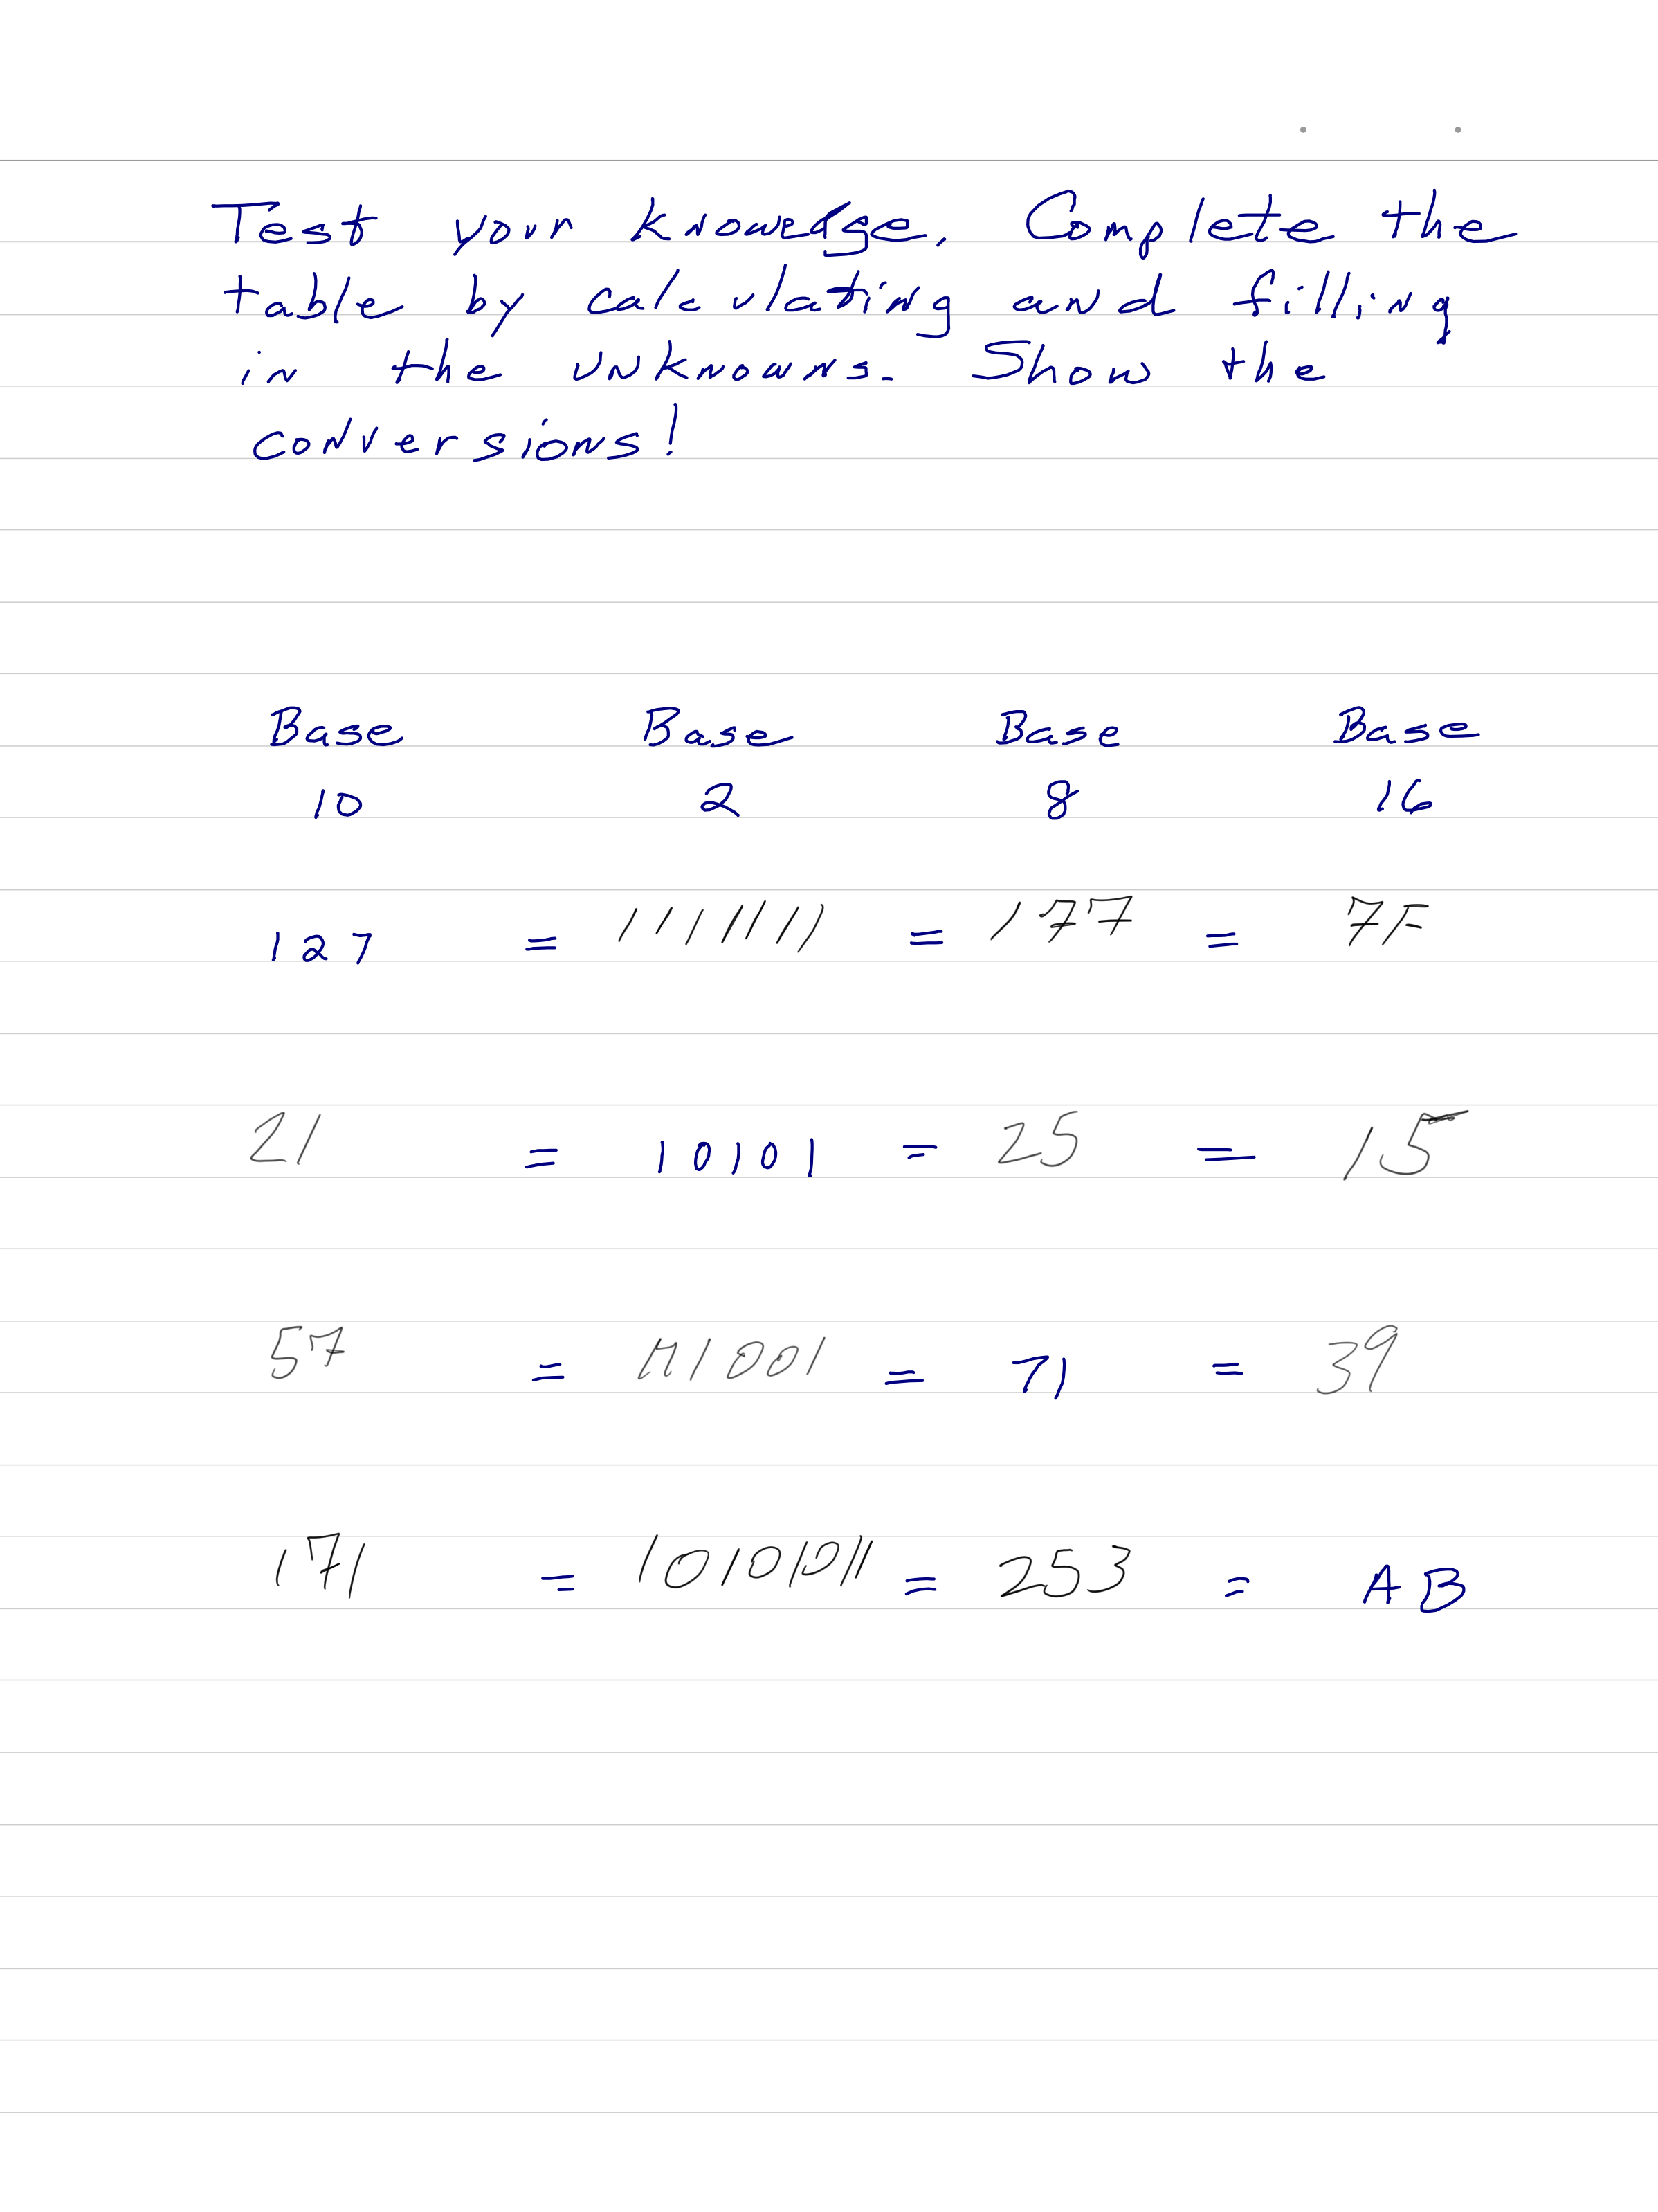 Test your knowedge. Complete the
table by calculating and filling
in the unknowns. Show the
conversions!
Base Base Base Base
10 2 8 16
127 = 1111111 = 177 = 7F
21 = 10101 = 25 = 15
57 = 111001 = 71 = 39
171 = 10101011 = 253 = AB